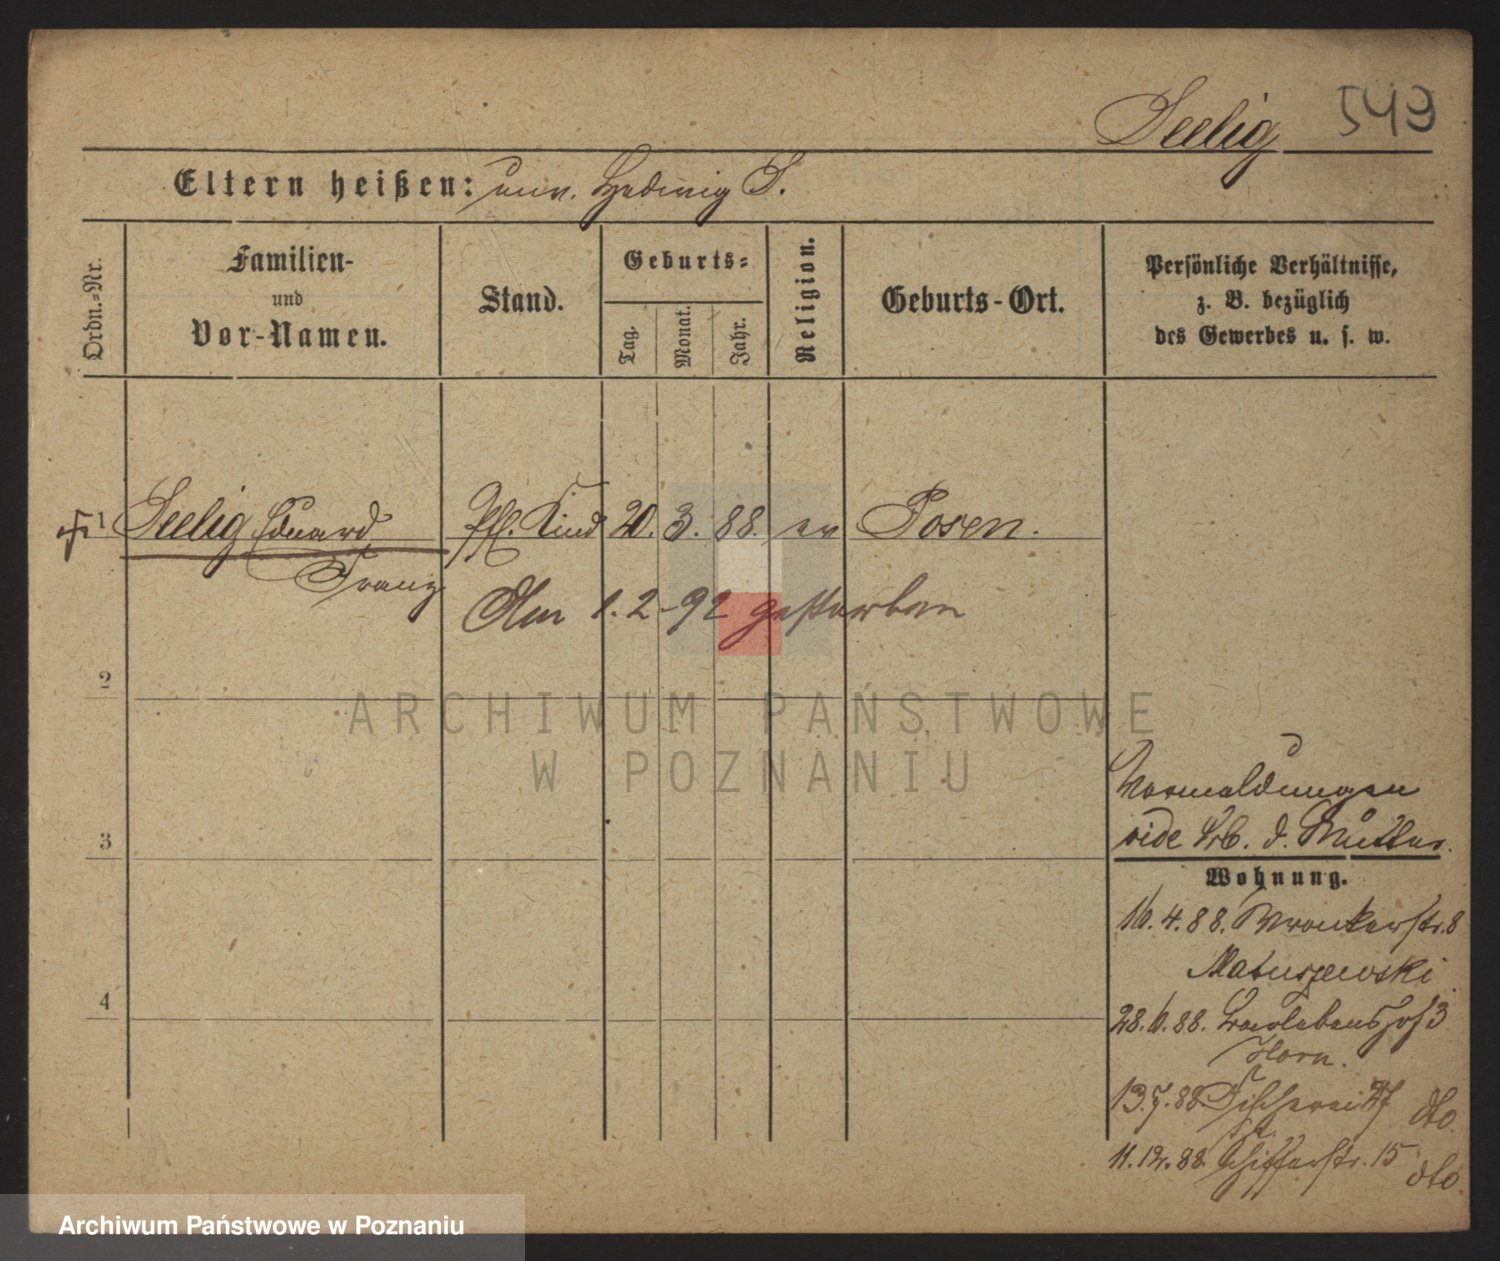 Seelig 543
Eltern heißen: unv. Hedwig S.
Ordn.-Nr.
Familien-
und
Vor-Namen.
Stand.
Geburts-
Tag.
Monat.
Jahr.
Religion.
Geburts-Ort.
Persönliche Verhältnisse,
z. B. bezüglich
des Gewerbes u. s. w.
1 Seelig Eduard Pfl. Kind 20. 3. 88. ev Posen.
Franz
Am 1. 2-92 gestorben
2
ARCHIWUM PAŃSTWOWE
W POZNANIU
3
4
Vormeldungen
vide d. Mutter.
Wohnung.
16. 4. 88. Wronkerstr. 8
Matuszewski
28. 6. 88. 3
Horn.
13. 7. 88 Fischerei 27 dto.
11. 12. 88. Schifferstr. 15 dto.
Archiwum Państwowe w Poznaniu